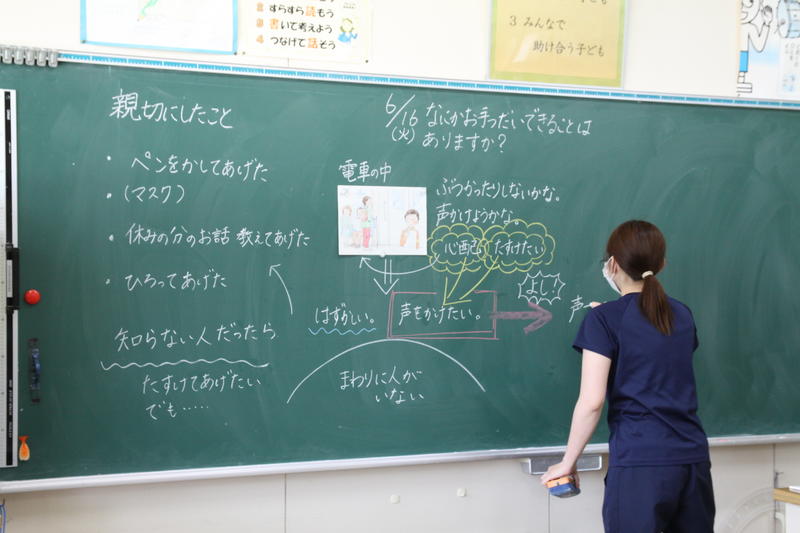 2 すらすら読もう
3 書いて考えよう
4 つなげて話そう
3 みんなで
助け合う子ども
親切にしたこと
・ ペンをかしてあげた
・ (マスク)
・ 休みの分のお話 教えてあげた
・ ひろってあげた
知らない人だったら
たすけてあげたい
でも……
6/16
(火)
なにかお手つだいできることは
ありますか?
電車の中
ぶつかったりしないかな。
声かけようかな。
心配
たすけたい
はずかしい。
声をかけたい。
よし!
声
まわりに人が
いない